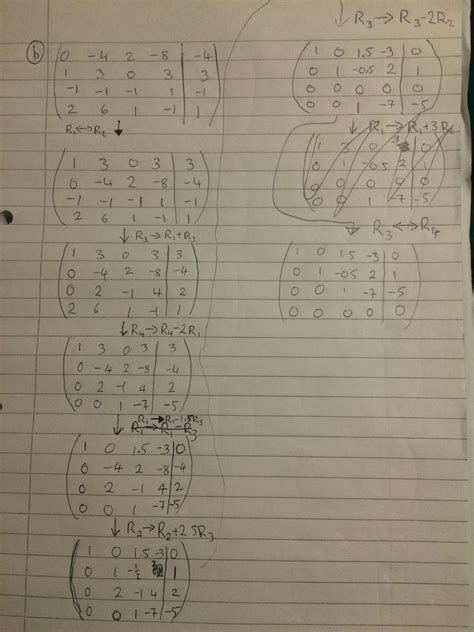 b
0 -4 2 -8 | -4
1 3 0 3 | 3
-1 -1 -1 1 | -1
2 6 1 -1 | 1
R₁↔R₂ ↓
1 3 0 3 | 3
0 -4 2 -8 | -4
-1 -1 -1 1 | -1
2 6 1 -1 | 1
↓ R₃→R₁+R₃
1 3 0 3 | 3
0 -4 2 -8 | -4
0 2 -1 4 | 2
2 6 1 -1 | 1
↓ R₄→R₄-2R₁
1 3 0 3 | 3
0 -4 2 -8 | -4
0 2 -1 4 | 2
0 0 1 -7 | -5
R₁→R₁-1.5R₃
↓ R₁→R₁-R₃
1 0 1.5 -3 | 0
0 -4 2 -8 | -4
0 2 -1 4 | 2
0 0 1 -7 | -5
↓ R₂→R₂+2.5R₃
1 0 1.5 -3 | 0
0 1 -½ 2 | 1
0 2 -1 4 | 2
0 0 1 -7 | -5
↓ R₃→R₃-2R₂
1 0 1.5 -3 | 0
0 1 -0.5 2 | 1
0 0 0 0 | 0
0 0 1 -7 | -5
↓ R₁→R₁+3R₄
0 1 -0.5 2 | 1
0 0 0 0 | 0
0 0 1 -7 | -5
↓ R₃↔R₄
1 0 1.5 -3 | 0
0 1 -0.5 2 | 1
0 0 1 -7 | -5
0 0 0 0 | 0